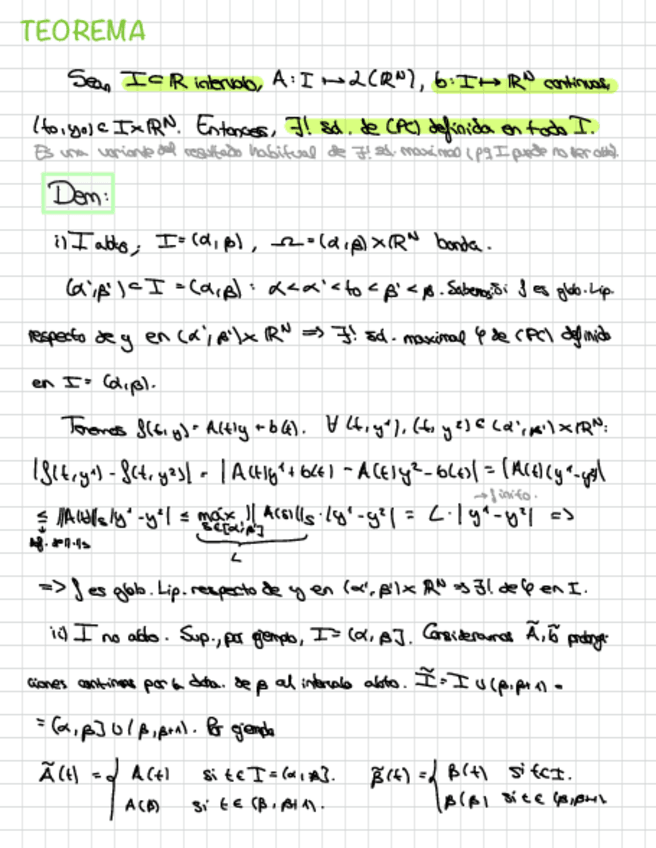 TEOREMA
Sean I⊂ℝ intervalo, A: I ↦ L(ℝᴺ), b: I ↦ ℝᴺ continuas,
(t₀,y₀) ∈ I×ℝᴺ. Entonces, ∃! sol. de (PC) definida en todo I.
Es una variante del resultado habitual de ∃! sol. maximal (pq I puede no ser abto).
Dem:
i) I abto; I=(α,β), Ω=(α,β)×ℝᴺ banda.
(α',β')⊂I=(α,β): α<α'<t₀<β'<β. Sabemos: Si f es glob. Lip.
respecto de y en (α',β')×ℝᴺ ⇒ ∃! sol. maximal φ de (PC) definida
en I=(α,β).
Tenemos f(t,y)=A(t)y+b(t). ∀(t,y¹),(t,y²)∈(α',β')×ℝᴺ:
|f(t,y¹)-f(t,y²)| = |A(t)y¹+b(t)-A(t)y²-b(t)| = |A(t)(y¹-y²)|
→ finito.
≤ ||A(t)||ₛ|y¹-y²| ≤ máx ||A(s)||ₛ·|y¹-y²| = L·|y¹-y²| ⇒
s∈[α',β']
L
⇒ f es glob. Lip. respecto de y en (α',β')×ℝᴺ ⇒ ∃! de φ en I.
ii) I no abto. Sup., por ejemplo, I=(α,β]. Consideramos Ã, b̃ prolonga-
ciones continuas por la dcha. de β al intervalo abto. Ĩ=I∪(β,β+1)=
=(α,β]∪(β,β+1). Por ejemplo
Ã(t) = { A(t) si t∈I=(α,β]. β̃(t) = { β(t) si t∈I.
A(β) si t∈(β,β+1). β(β) si t∈(β,β+1)